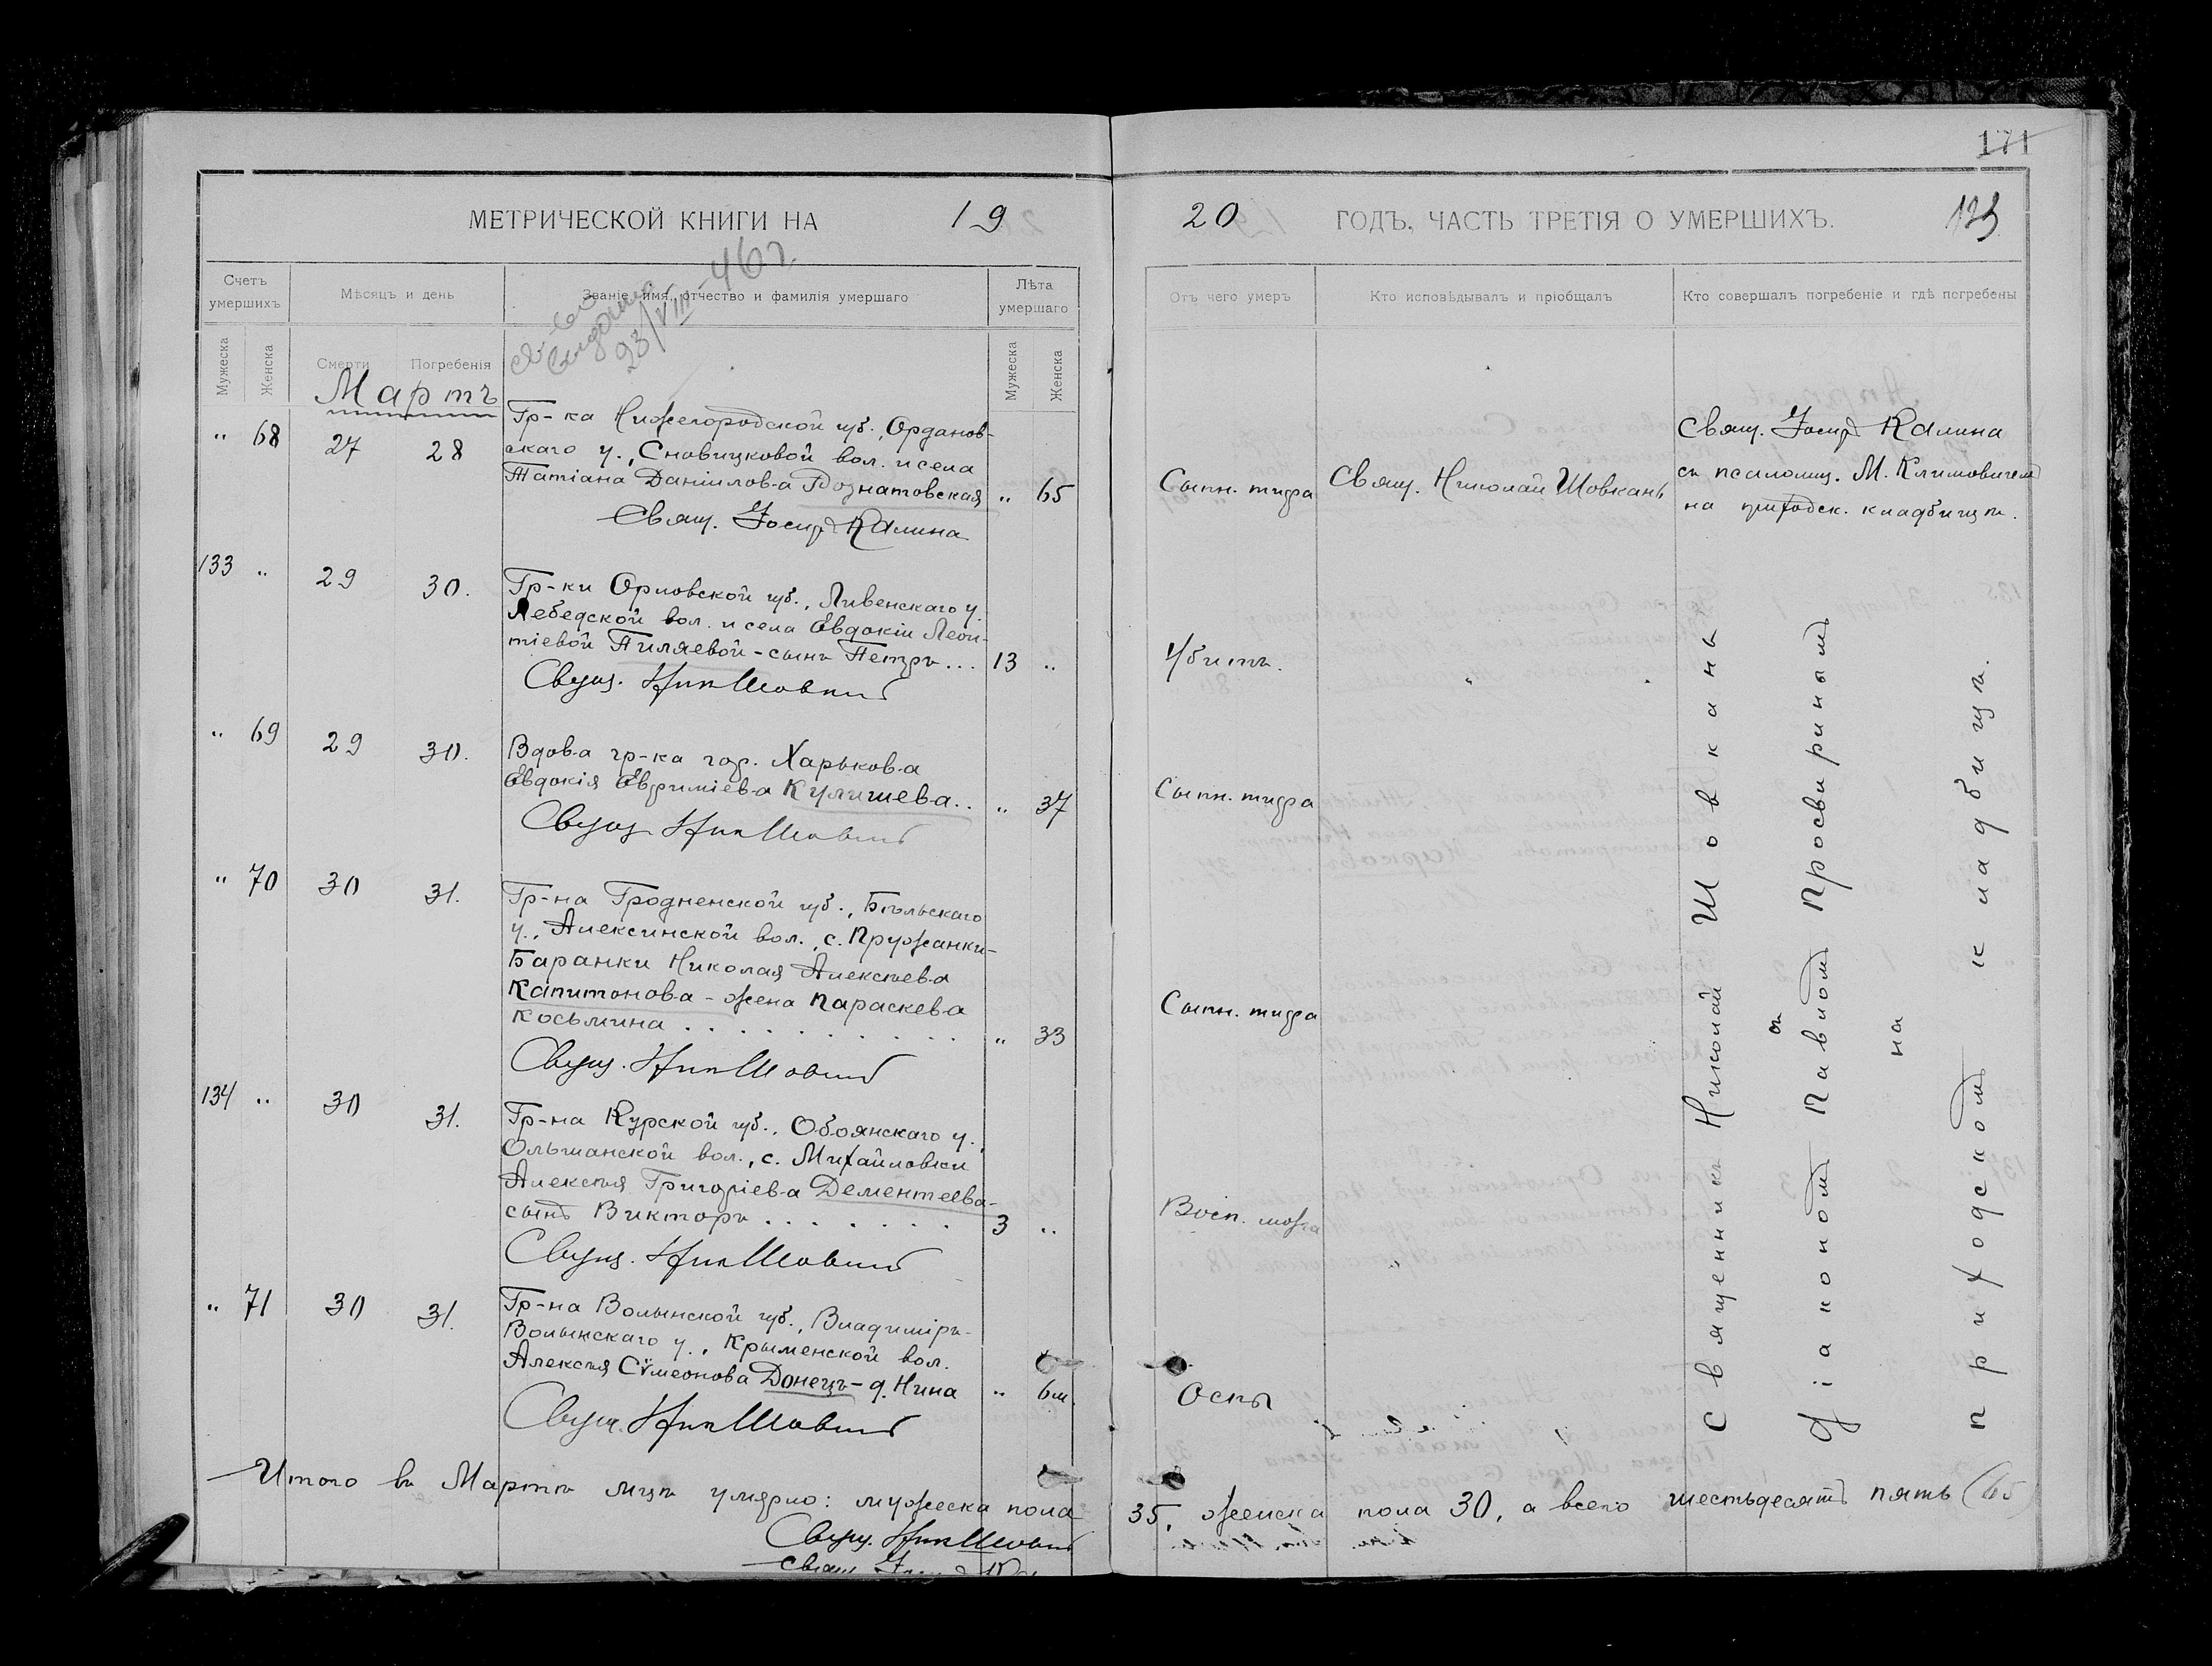 171
МЕТРИЧЕСКОЙ КНИГИ НА 19
20 ГОДЪ, ЧАСТЬ ТРЕТІЯ О УМЕРШИХЪ.
Счетъ умершихъ
Мѣсяцъ и день
Званіе, имя, отчество и фамилія умершаго
Лѣта умершаго
Отъ чего умеръ
Кто исповѣдывалъ и пріобщалъ
Кто совершалъ погребеніе и гдѣ погребены
Мужеска
Женска
Смерти
Погребенія
Мужеска
Женска
23/VIII-46г.
Мартъ
" 68 27 28
Гр-ка Нижегородской губ.,
скаго у., вол. и села
Татіана Даніилов-а " 65
Свящ. Іосиф Калина
Сыпн. тифа
Свящ. Николай Шовкань
Свящ. Іосиф Калина
съ псаломщ. М. Климовичем
на приходск. кладбищѣ.
133 " 29 30.
Гр-ки Орловской губ., Ливенскаго у.
Лебедской вол. и села Евдокіи Леон-
тіевой Пиляевой - сынъ Петръ... 13 "
Свящ. Ник Шовкань
Убитъ.
" 69 29 30.
Вдов-а гр-ка гор. Харьков-а
Евдокія Евфиміев-а Кулишева.. " 37
Свящ Ник Шовкань
Сыпн. тифа
" 70 30 31.
Гр-на Гродненской губ., Бѣльскаго
у., Алексинской вол., с. Пружанки-
Баранки Николая Алексѣев-а
Капитонов-а - жена Параскев-а
Косьмина . . . . . . . . . " 33
Свящ. Ник Шовкань
Сыпн. тифа
134 " 30 31.
Гр-на Курской губ., Обоянскаго у.,
Ольшанской вол., с. Михайловки
Алексѣя Григоріев-а Дементеева-
сынъ Викторъ . . . . . . . 3 "
Свящ. Ник Шовкань
Восп. мозга
" 71 30 31.
Гр-на Волынской губ., Владиміръ-
Волынскаго у., Крыменской вол.
Алексѣя Сѵмеонова Донецъ - д. Нина " 6м.
Свящ. Ник Шовкань
Оспы
Священникъ Николай Шовкань
съ
діакономъ Павломъ Просвиринымъ
на
приходскомъ кладбищѣ.
Итого въ Мартѣ мцѣ умерло: мужеска пола
35, женска пола 30, а всего шестьдесятъ пять (65)
Свящ. Ник Шовкань